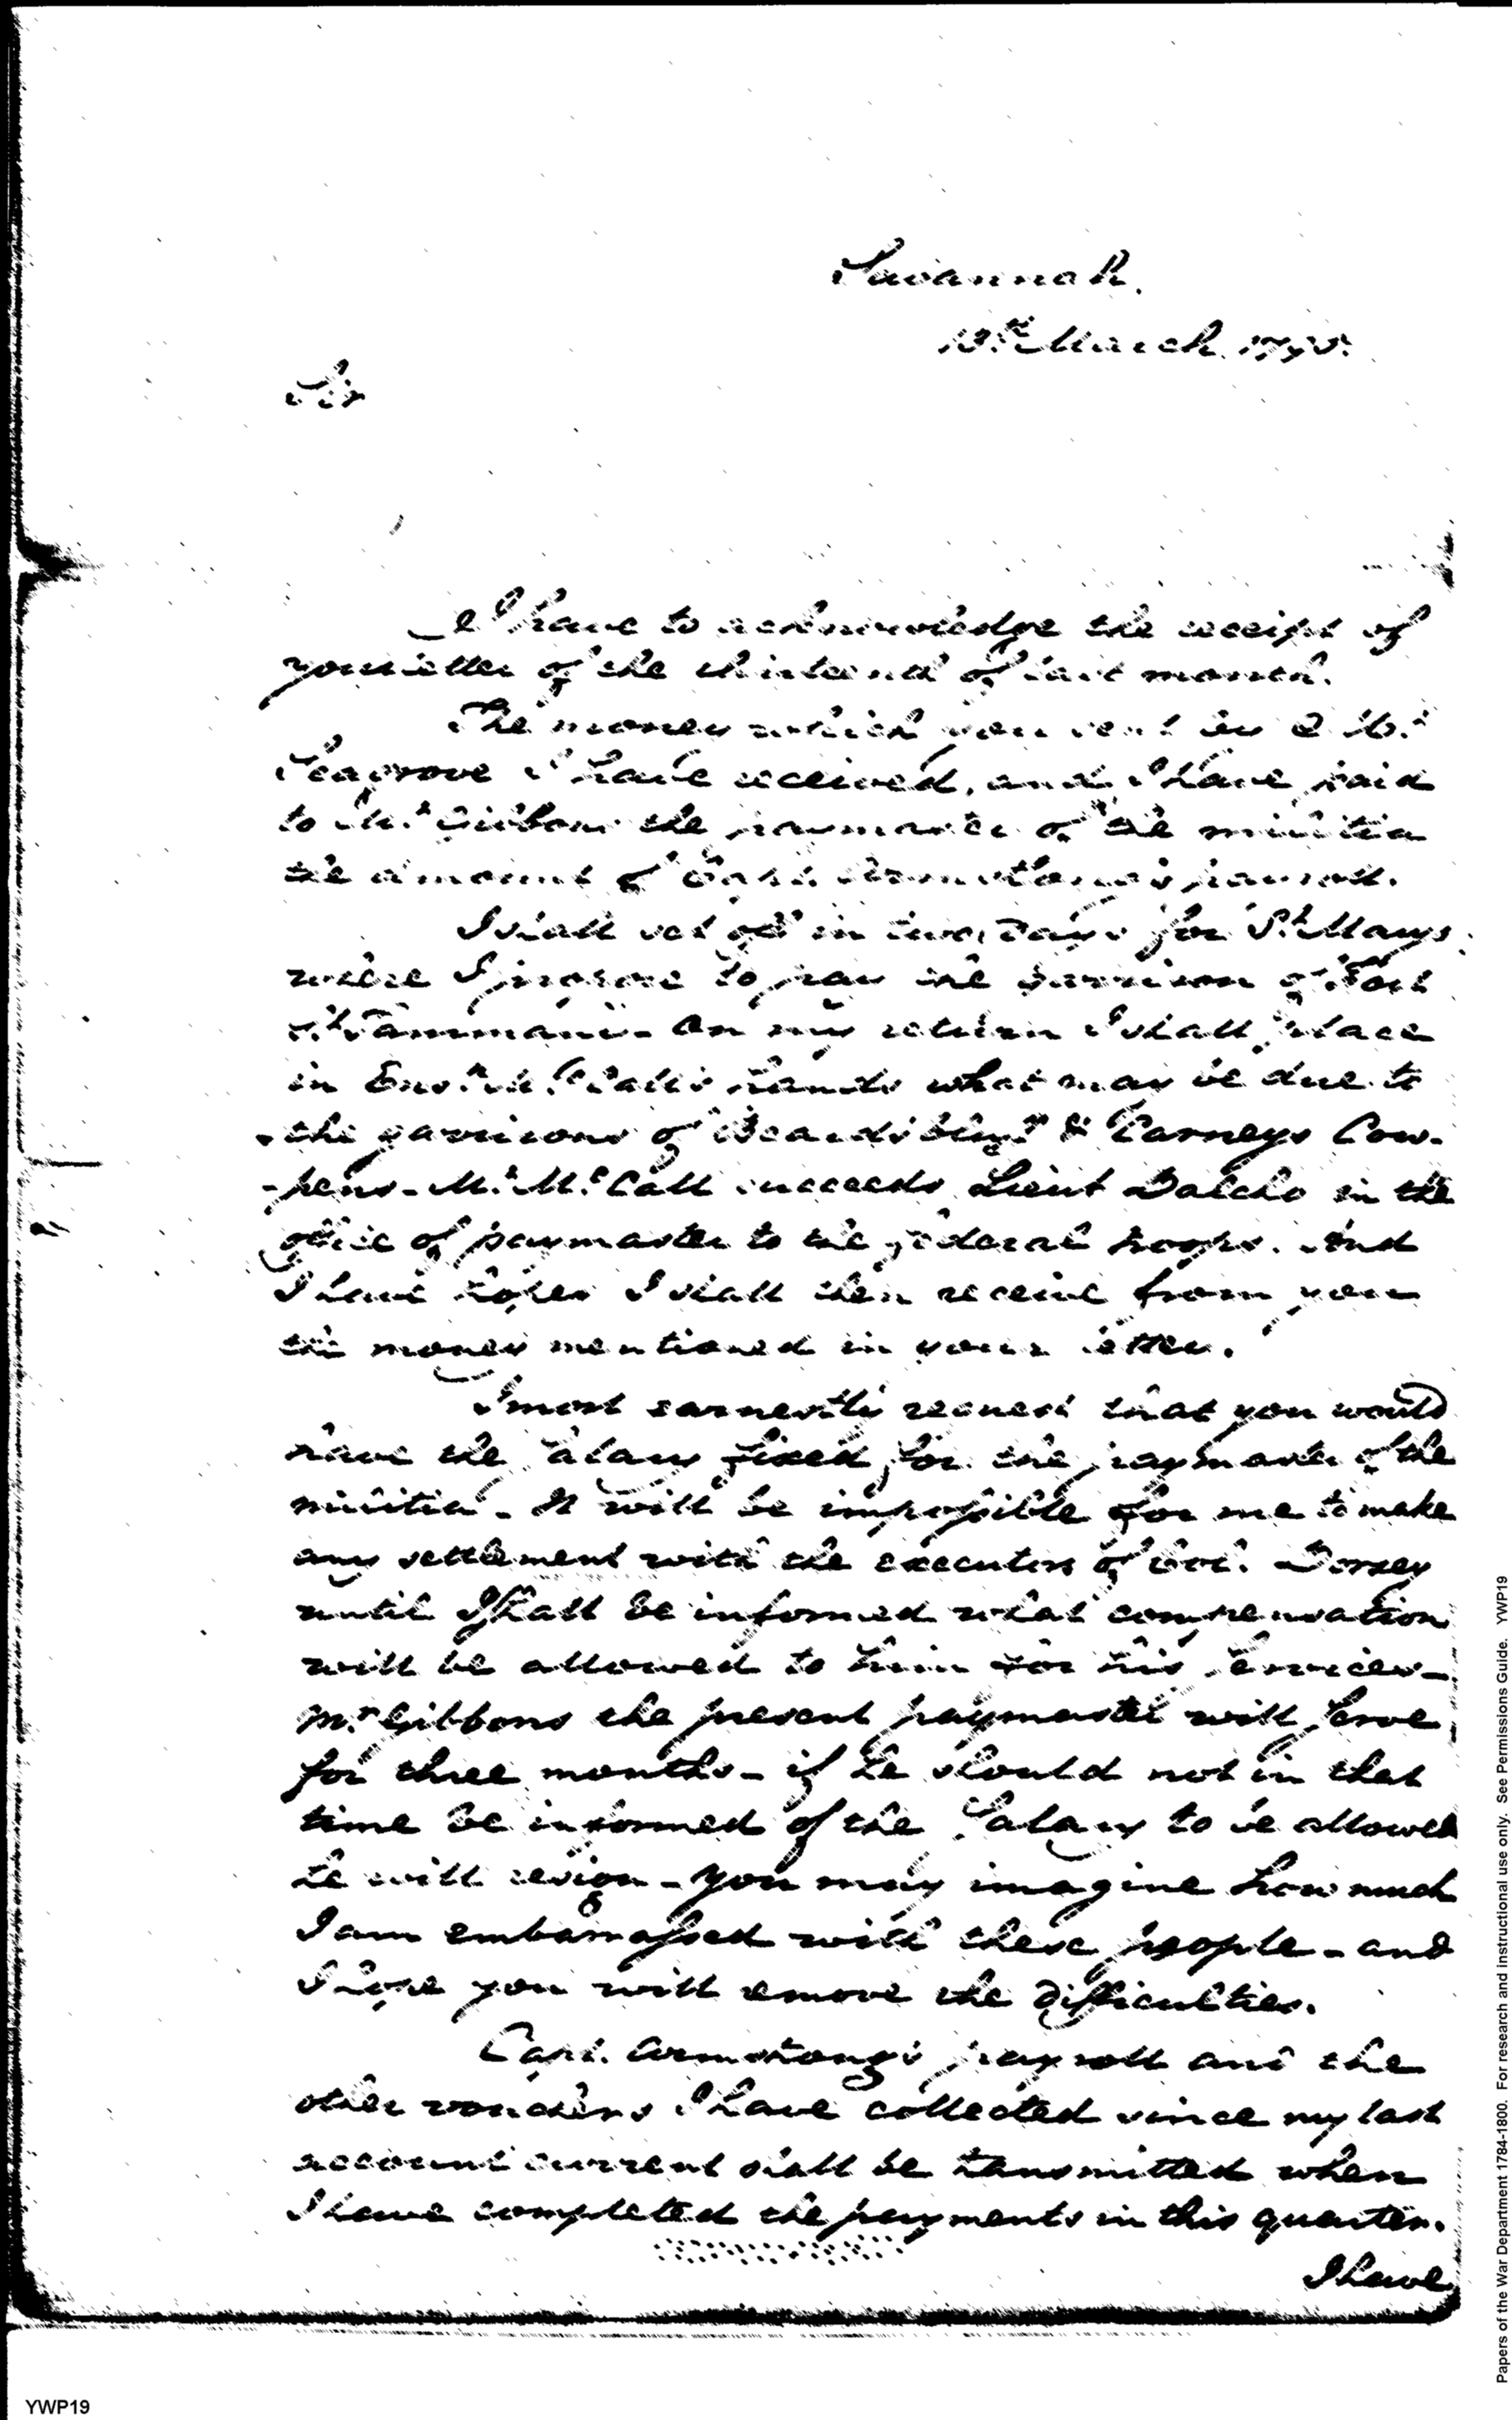 Savannah.
March
Sir
I have to acknowledge the receipt of
your letter of the thirteenth of last month.
The money which you sent by
Seagrove I have received, and I have paid
to Mr. Gibbons the paymaster of the militia
the amount of Capt. Armstrong's payroll.
I shall set off in two days for St. Marys
where I propose to pay the garrison of Fort
St. Tammani - On my return I shall place
in Ensn. McCall's hands what may be due to
the garrisons of Beards bluff & Carneys Cow-
-pens - Mr. McCall succeeds Lieut Dalcho in the
office of paymaster to the federal troops. And
I have hopes I shall then receive from you
the money mentioned in your letter.
I most earnestly request that you would
have the Salary fixed for the paymaster of the
militia - It will be impossible for me to make
any settlement with the executors of Dorsey
until I shall be informed what compensation
will be allowed to him for his Services -
Mr Gibbons the present paymaster will serve
for three months - if he should not in that
time be informed of the Salary to be allowed
he will resign - you may imagine how much
I am embarrassed with these people - and
I hope you will remove the difficulties.
Capt. Armstrong's payroll and the
other vouchers I have collected since my last
account current shall be transmitted when
I have completed the payments in this quarter.
I have
YWP19
Papers of the War Department 1784-1800. For research and instructional use only. See Permissions Guide. YWP19